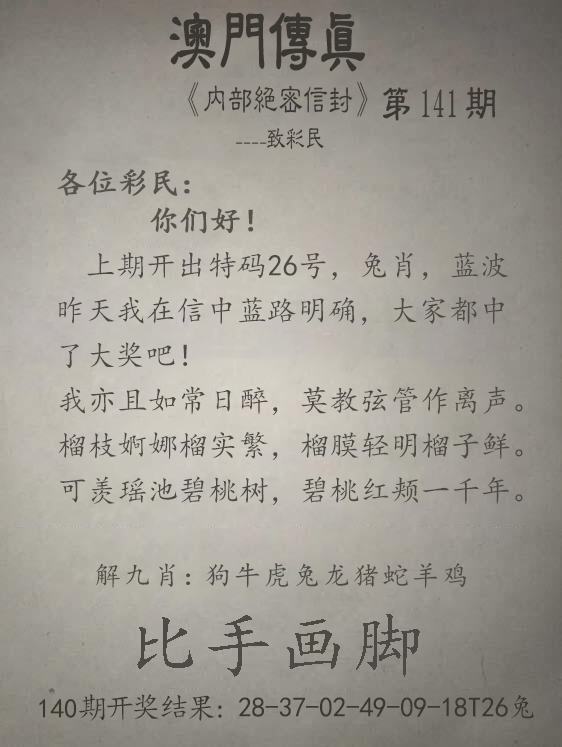 澳門傳真
《内部絕密信封》第141期
----致彩民
各位彩民：
你们好！
上期开出特码26号，兔肖，蓝波
昨天我在信中蓝路明确，大家都中
了大奖吧！
我亦且如常日醉，莫教弦管作离声。
榴枝婀娜榴实繁，榴膜轻明榴子鲜。
可羡瑶池碧桃树，碧桃红颊一千年。
解九肖：狗牛虎兔龙猪蛇羊鸡
比手画脚
140期开奖结果：28-37-02-49-09-18T26兔